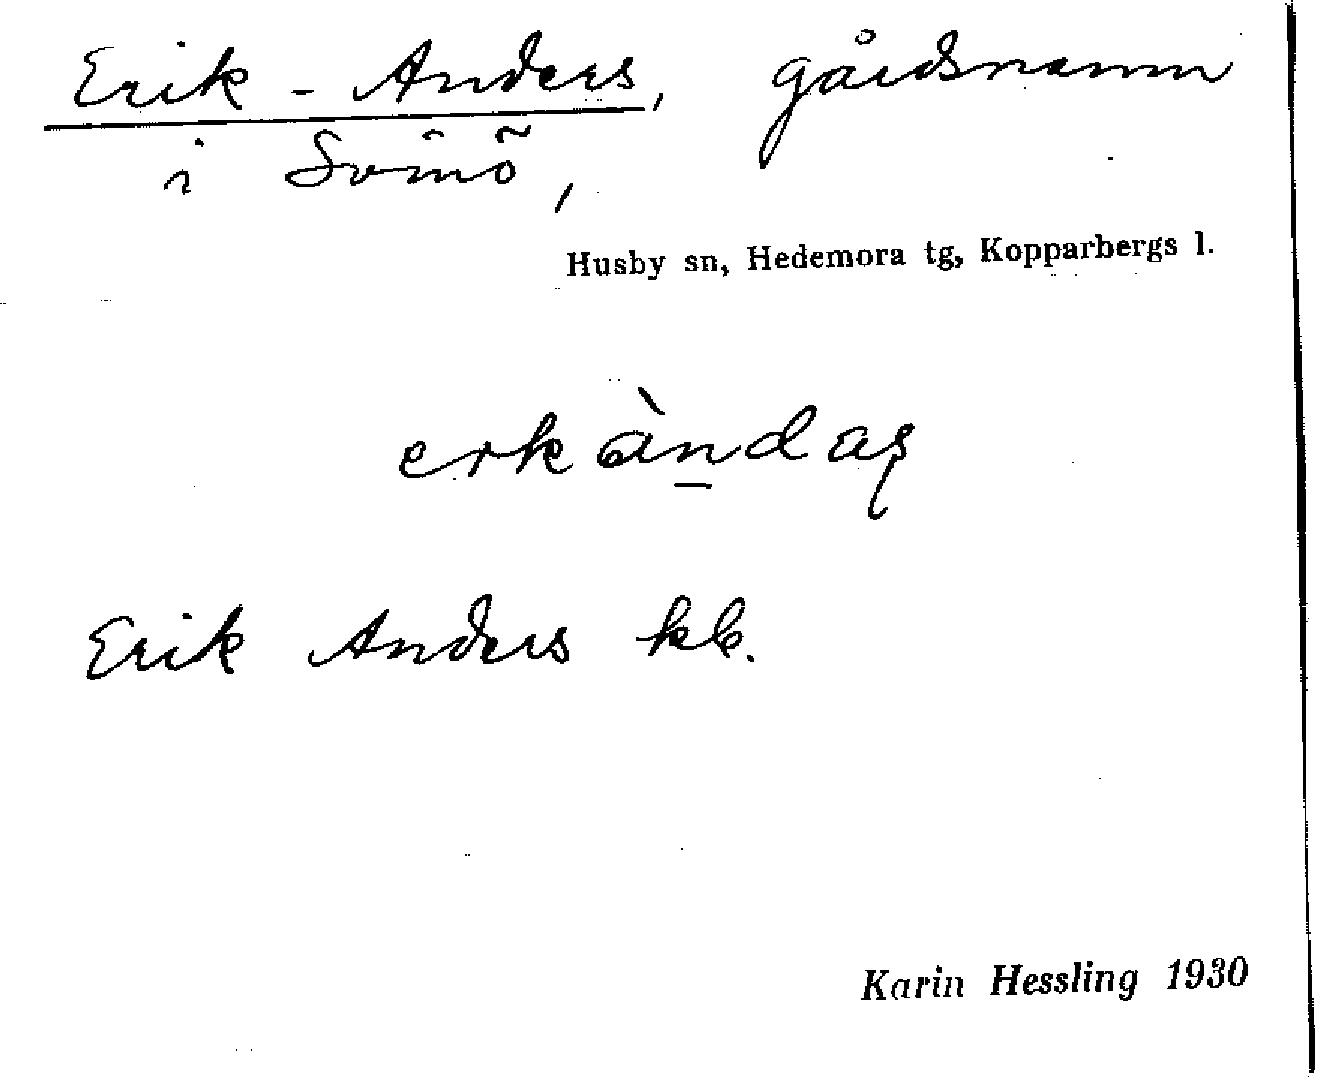 Erik - Anders, gårdsnamn
i Svinö,
Husby sn, Hedemora tg, Kopparbergs l.
erkàn̲daș
Erik Anders kb.
Karin Hessling 1930